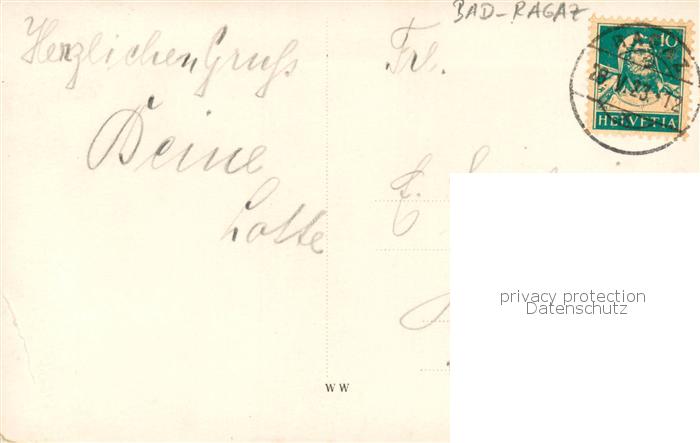 BAD-RAGAZ
10
HELVETIA
Herzlichen Gruß
Deine
Lotte
Frl.
E.
privacy protection
Datenschutz
WW